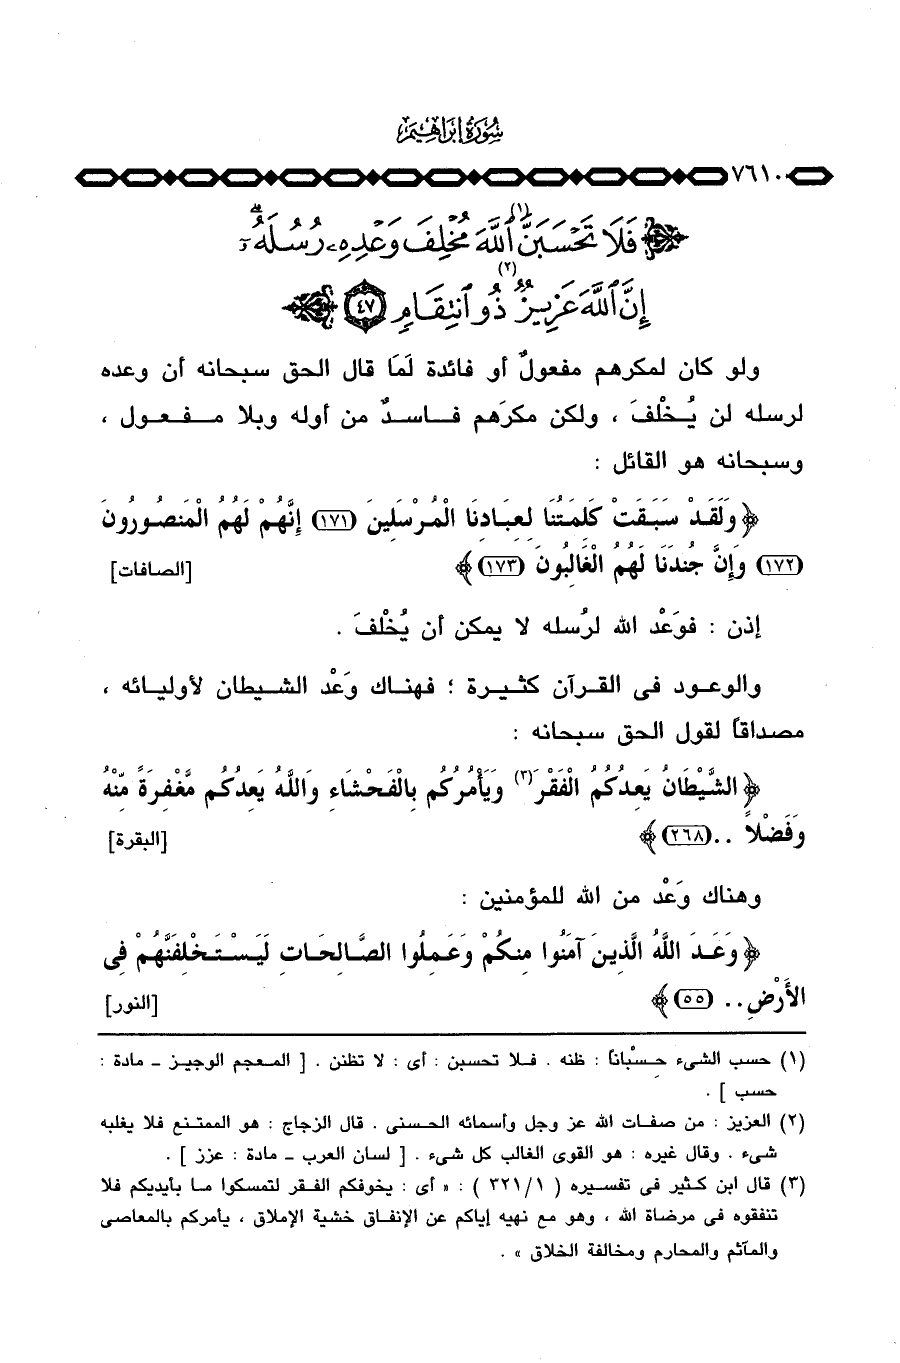 سورة إبراهيم
٧٦١٠
فَلَا تَحْسَبَنَّ(١) ٱللَّهَ مُخْلِفَ وَعْدِهِۦ رُسُلَهُۥٓ ۗ
إِنَّ ٱللَّهَ عَزِيزٌ(٢) ذُو ٱنتِقَامٍ ٤٧
ولو كان لمكرهم مفعولٌ أو فائدة لَمَا قال الحق سبحانه أن وعده
لرسله لن يُخْلفَ ، ولكن مكرَهم فاسدٌ من أوله وبلا مفعول ،
وسبحانه هو القائل :
﴿ وَلَقَدْ سَبَقَتْ كَلِمَتُنَا لِعِبَادِنَا الْمُرْسَلِينَ (١٧١) إِنَّهُمْ لَهُمُ الْمَنصُورُونَ
(١٧٢) وَإِنَّ جُندَنَا لَهُمُ الْغَالِبُونَ (١٧٣) ﴾ [الصافات]
إذن : فوَعْد الله لرُسله لا يمكن أن يُخْلفَ .
والوعود فى القرآن كثيرة ؛ فهناك وَعْد الشيطان لأوليائه ،
مصداقاً لقول الحق سبحانه :
﴿ الشَّيْطَانُ يَعِدُكُمُ الْفَقْرَ(٣) وَيَأْمُرُكُم بِالْفَحْشَاءِ وَاللَّهُ يَعِدُكُم مَّغْفِرَةً مِّنْهُ
وَفَضْلاً .. (٢٦٨) ﴾ [البقرة]
وهناك وَعْد من الله للمؤمنين :
﴿ وَعَدَ اللَّهُ الَّذِينَ آمَنُوا مِنكُمْ وَعَمِلُوا الصَّالِحَاتِ لَيَسْتَخْلِفَنَّهُمْ فِى
الأَرْضِ .. (٥٥) ﴾ [النور]
(١) حسب الشىء حسْباناً : ظنه . فلا تحسبن : أى : لا تظنن . [ المعجم الوجيز - مادة :
حسب ] .
(٢) العزيز : من صفات الله عز وجل وأسمائه الحسنى . قال الزجاج : هو الممتنع فلا يغلبه
شىء . وقال غيره : هو القوى الغالب كل شىء . [ لسان العرب - مادة : عزز ] .
(٣) قال ابن كثير فى تفسيره ( ٣٢١/١ ) : « أى : يخوفكم الفقر لتمسكوا ما بأيديكم فلا
تنفقوه فى مرضاة الله ، وهو مع نهيه إياكم عن الإنفاق خشية الإملاق ، يأمركم بالمعاصى
والمآثم والمحارم ومخالفة الخلاق » .